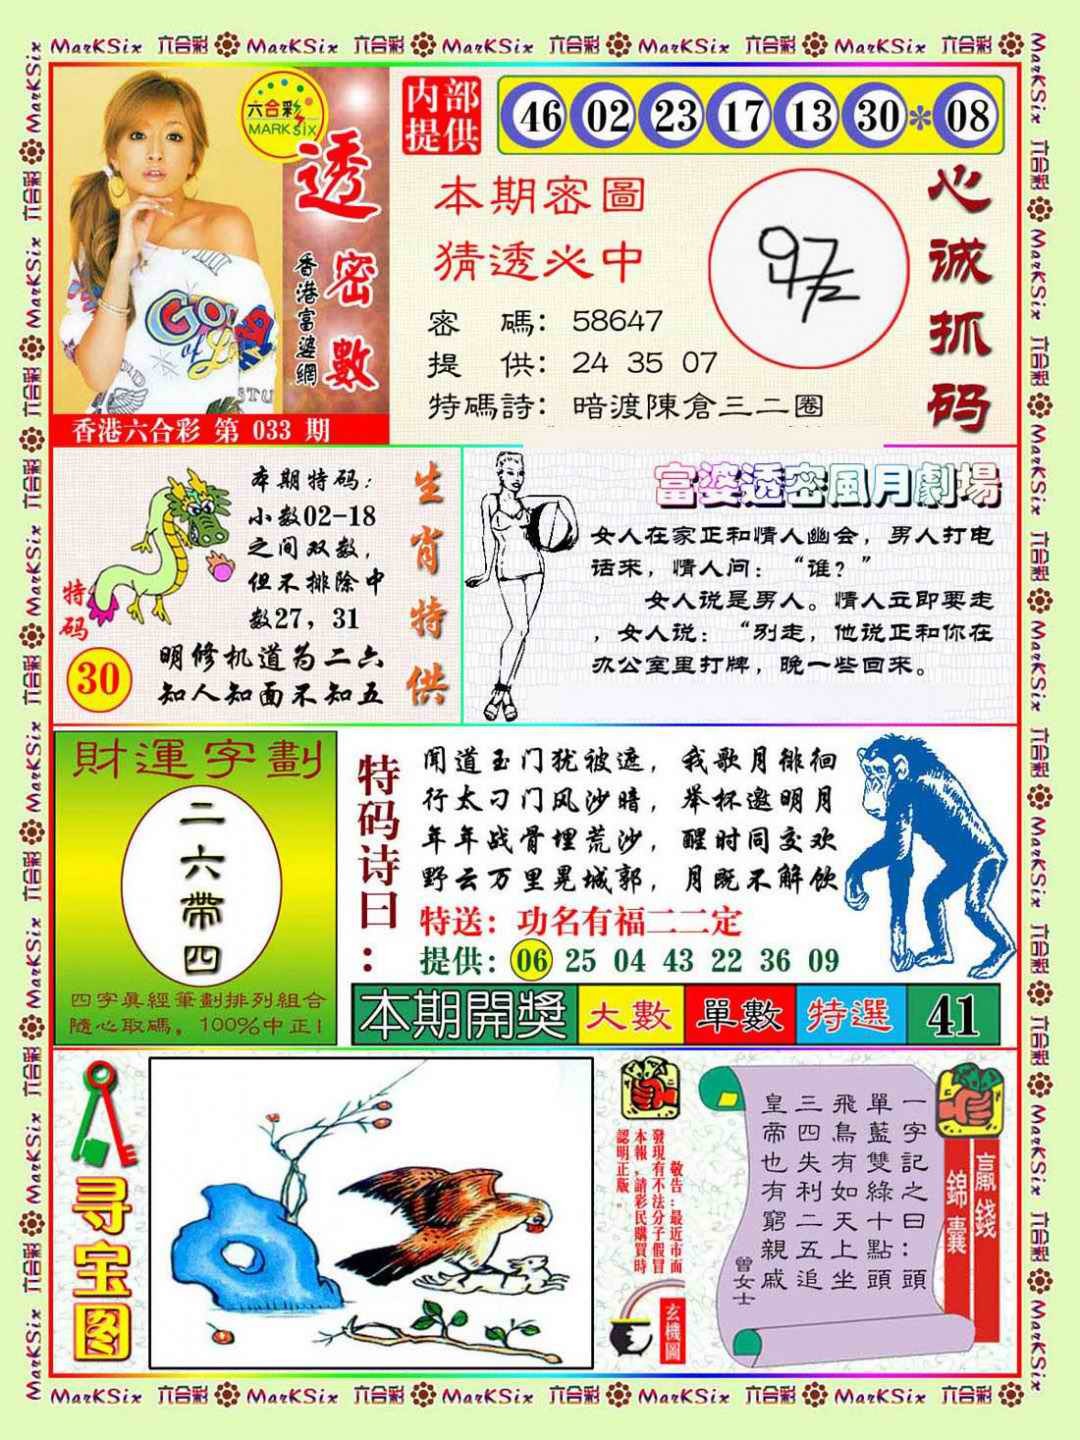 MarKSix 六合彩 MarKSix 六合彩 MarKSix 六合彩 MarKSix 六合彩 MarKSix 六合彩
六合彩
MARK SIX
透密數
香港富婆網
香港六合彩 第 033 期
内部
提供
46 02 23 17 13 30 * 08
本期密圖
猜透必中
密 碼: 58647
提 供: 24 35 07
特碼詩: 暗渡陳倉三二圈
97
心诚抓码
本期特码:
小数02-18
之间双数,
但不排除中
数27, 31
特码
30
明修机道为二六
知人知面不知五
生肖特供
富婆透密風月劇場
女人在家正和情人幽会, 男人打电
话来, 情人问: “谁? ”
女人说是男人。情人立即要走
, 女人说: “别走, 他说正和你在
办公室里打牌, 晚一些回来。
財運字劃
二六帶四
四字真經筆劃排列組合
隨心取碼, 100%中正!
特码诗曰:
闻道玉门犹被遮, 我歌月徘徊
行太刁门风沙暗, 举杯邀明月
年年战骨埋荒沙, 醒时同交欢
野云万里晃城郭, 月既不解饮
特送: 功名有福二二定
提供: 06 25 04 43 22 36 09
本期開獎 大數 單數 特選 41
寻宝图
敬告:最近市面
發現有不法分子假冒
本報,請彩民購買時
認明正版。
玄機圖
贏錢
錦囊
一字記之曰:頭
單藍雙綠十點頭
飛鳥有如天上坐
三四失利二五追
皇帝也有窮親戚
曾女士
MarKSix 六合彩 MarKSix 六合彩 MarKSix 六合彩 MarKSix 六合彩 MarKSix 六合彩